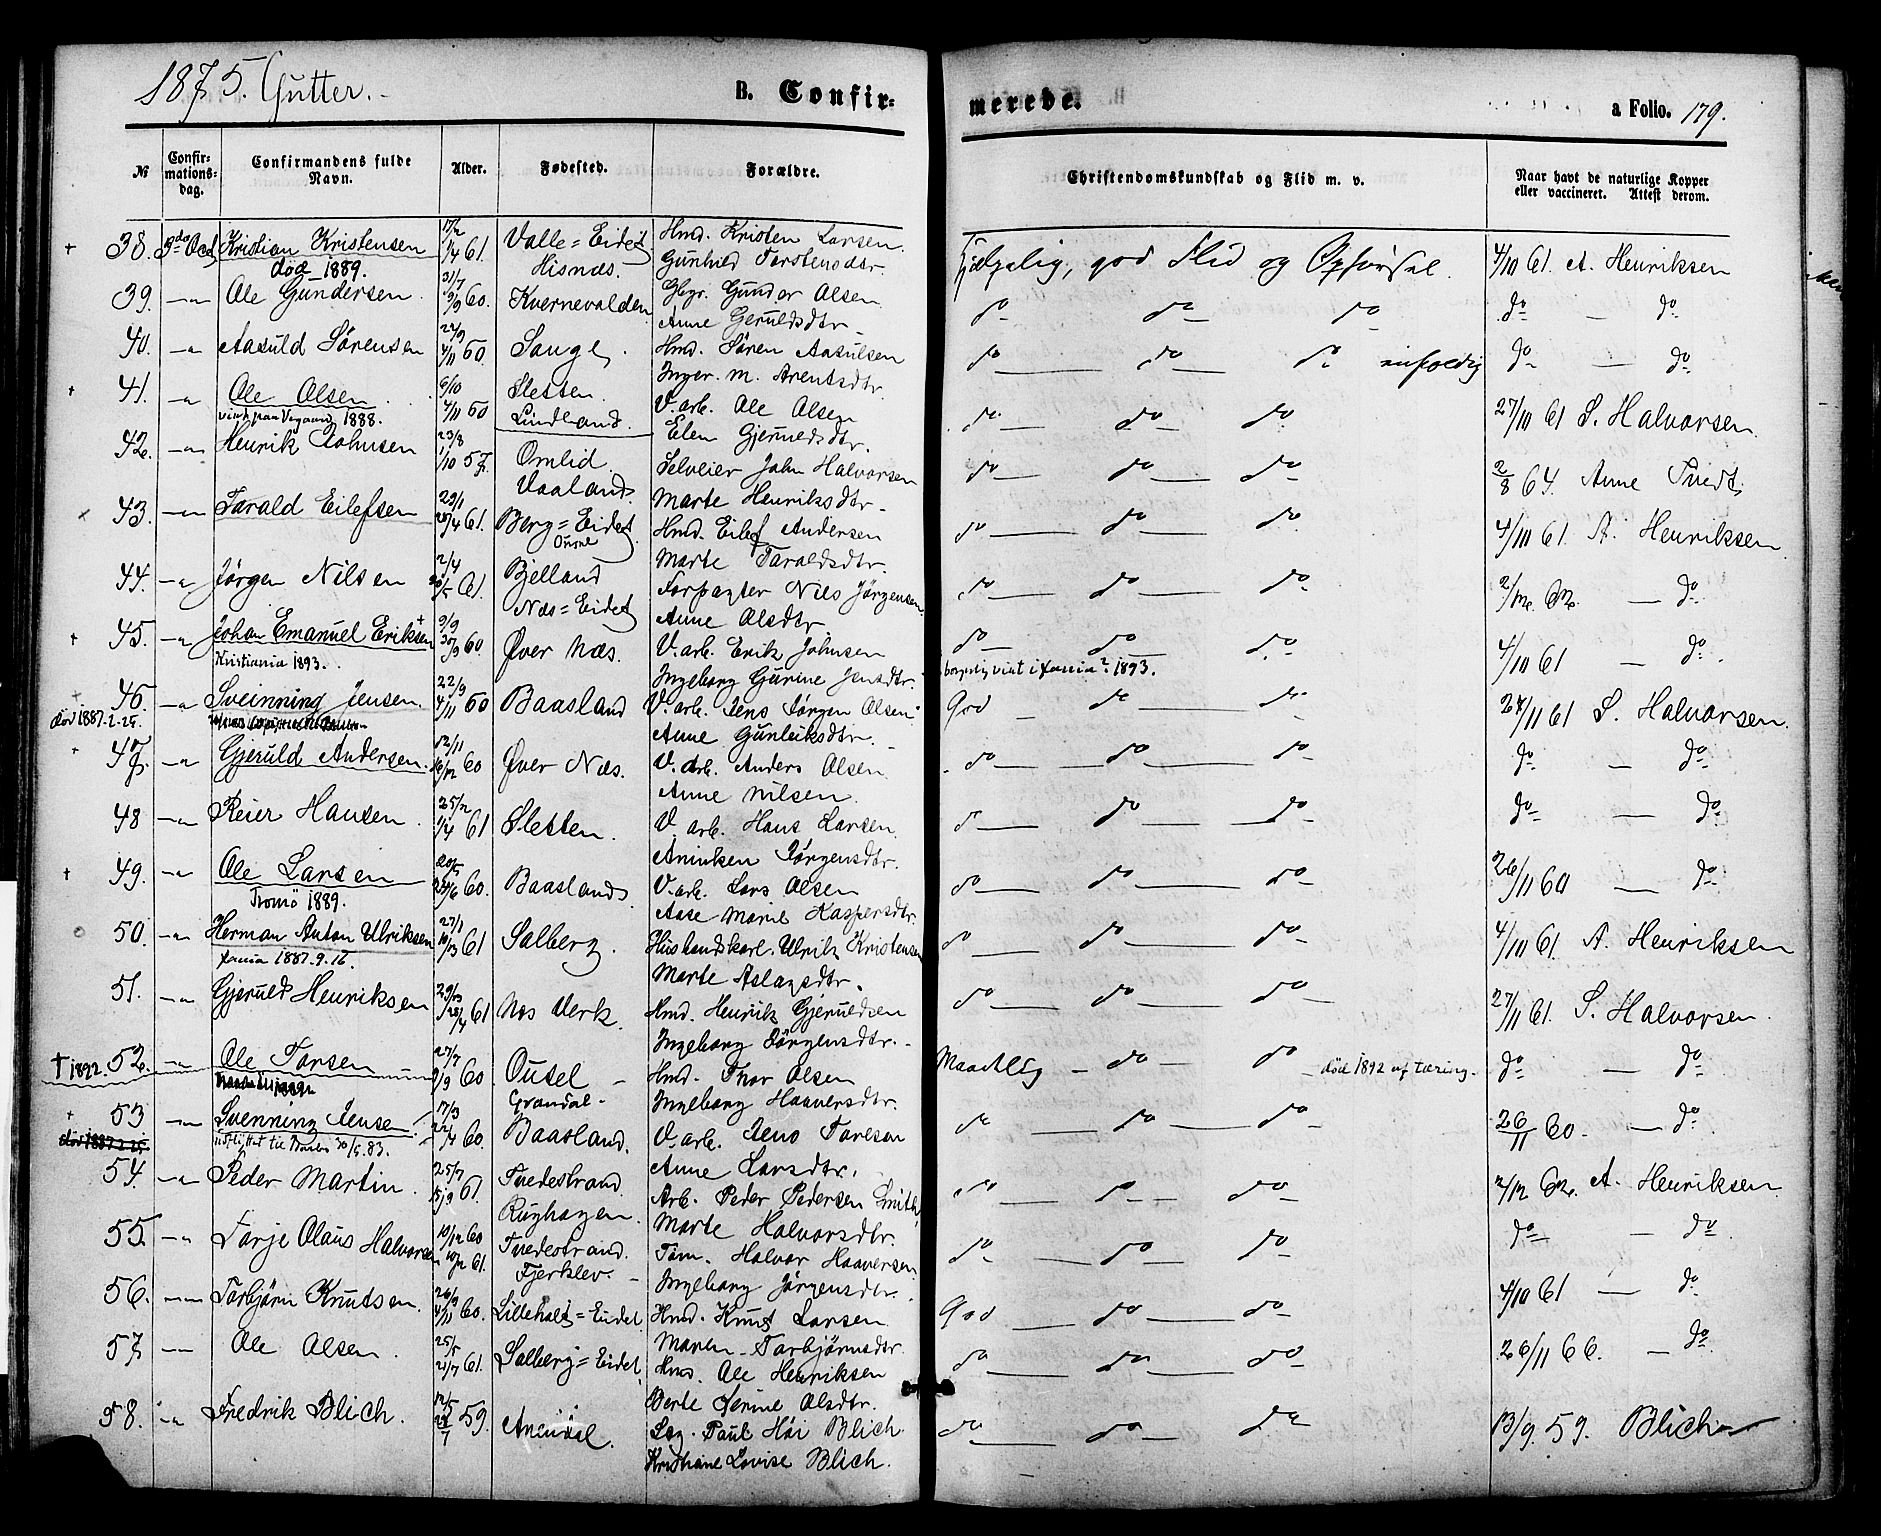 1875. Gutter.
B. Confir-
merede.
a Folio. 179.
№ Confir-mations-dag. Confirmandens fulde Navn. Alder. Fødested. Forældre. Christendomskundskab og Flid m. v. Naar havt de naturlige Kopper eller vaccineret. Attest derom.
38. Kristian Kristensen 17/2 1/4 61 Valle = Eidet Hmd. Kristen Larsen god Flid og Opførsel. 4/10 61. A. Henriksen
død 1889. Hisnæs. Gunhild Tarstensdtr.
39. Ole Gundersen 31/7 9/9 60. Kvernevolden Gbgr. Gunder Olsen do do do do — do
Anne Geruldsdtr
40. Aasuld Sørensen 22/9 4/11 60 Songe Hmd. Søren Aasulsen do do do do — do
Inger. M. Arentsdtr.
41. Ole Olsen 6/10 4/11 60 Sletten V. arb. Ole Olsen do do do 27/10 61 S. Halvorsen
1888. Lindland. Elen Gjeruldsdtr.
42. Henrik Johnsen 23/8 1/10 57. Omlid Selveier John Halvorsen do do do 2/8 64. Anne Tvedt
Vaaland. Marte Henriksdtr
43. Tarald Eilefsen 29/1 28/4 61. Berg = Eidet Hmd. Eilef Andersen do do do 4/10 61. A. Henriksen
Marte Taraldsdtr.
44. Jørgen Nilsen 2/4 61. Bjelland Forpagter Nils Jørgensen do do do — do
Næs = Eidet Anne Olsdtr
45. Johan Emanuel Eriksen 9/9 30/9 60 Øver Næs. V. arb. Erik Johnsen do do do 4/10 61 — do
Kristiania 1893. Ingeborg Gurine Jensdtr. 1893.
46. Sveinning Jensen. 22/9 4/11 60 Baasland V. arb. Jens Jørgen Olsen God do do 27/11 61 S. Halvorsen.
død 1887.2.25. Anne Gunleiksdtr.
47. Gjeruld Andersen. 12/11 16/12 60 Øver Næs. V. Arb. Anders Olsen do do do do — do
Anne Nilsen.
48 Reier Hansen 25/2 1/4 61 Sletten. V. arb. Hans Larsen do do do do — do
Aninken Jørgensdtr.
49. Ole Larsen 20/5 24/6 60. Baasland V. arb. Lars Olsen do do do 26/11 60 — do
Tromö 1889. Aase Marie Kaspersdtr.
50. Herman Anton Ulriksen 27/1 10/3 61 Solberg. Husbondskarl. Ulrik Kristensen do do do 4/10 61. A. Henriksen
1887.9.16. Marte Aslagsdtr.
51. Gjeruld Henriksen 28/4 61 Næs Verk. Hmd. Henrik Gjeruldsen do do do 27/11 61. S. Halvorsen.
Ingeborg Jørgensdtr.
† 1892. 52. Ole Torsen 27/7 9/9 60 Ousel Hmd. Thor Olsen Maadelig do do død 1892 af tæring. do — do
Grandal Ingeborg Haaversdtr.
53 Svenning Jensen 17/3 22/4 60. Baasland. V. arb. Jens Taresen do do do 26/11 60 — do
død 1887 2 25. 83. Anne Larsdtr.
54. Peder Martin 25/7 15/9 61. Tvedestrand. Arb. Peder Pedersen Smith do do do 2/12 62. A. Henriksen
Rughagen. Marte Halvorsdtr.
55. Tarje Olaus Halvorsen 10/12 60 Tvedestrand. Tøm. Halvor Haaversen do do do do — do
61. Fjerklev. Ingeborg Jørgensdtr.
56. Torbjørn Knudsen. 26/9 4/11 60. Lilleholt = Eidet Hmd. Knut Larsen God do do 4/10 61 — do
Maren Torbjørnsdtr
57. Ole Olsen. 25/5 21/7 61. Solberg = Eidet Hmd. Ole Henriksen do do do 26/11 66. — do
Berte Serine Olsdtr.
58. Fredrik Blich. 12/5 59. Arendal. Log. Paul Höi Blich. do do do 13/9. 59. Blich
Kristiane Lovise Blich.